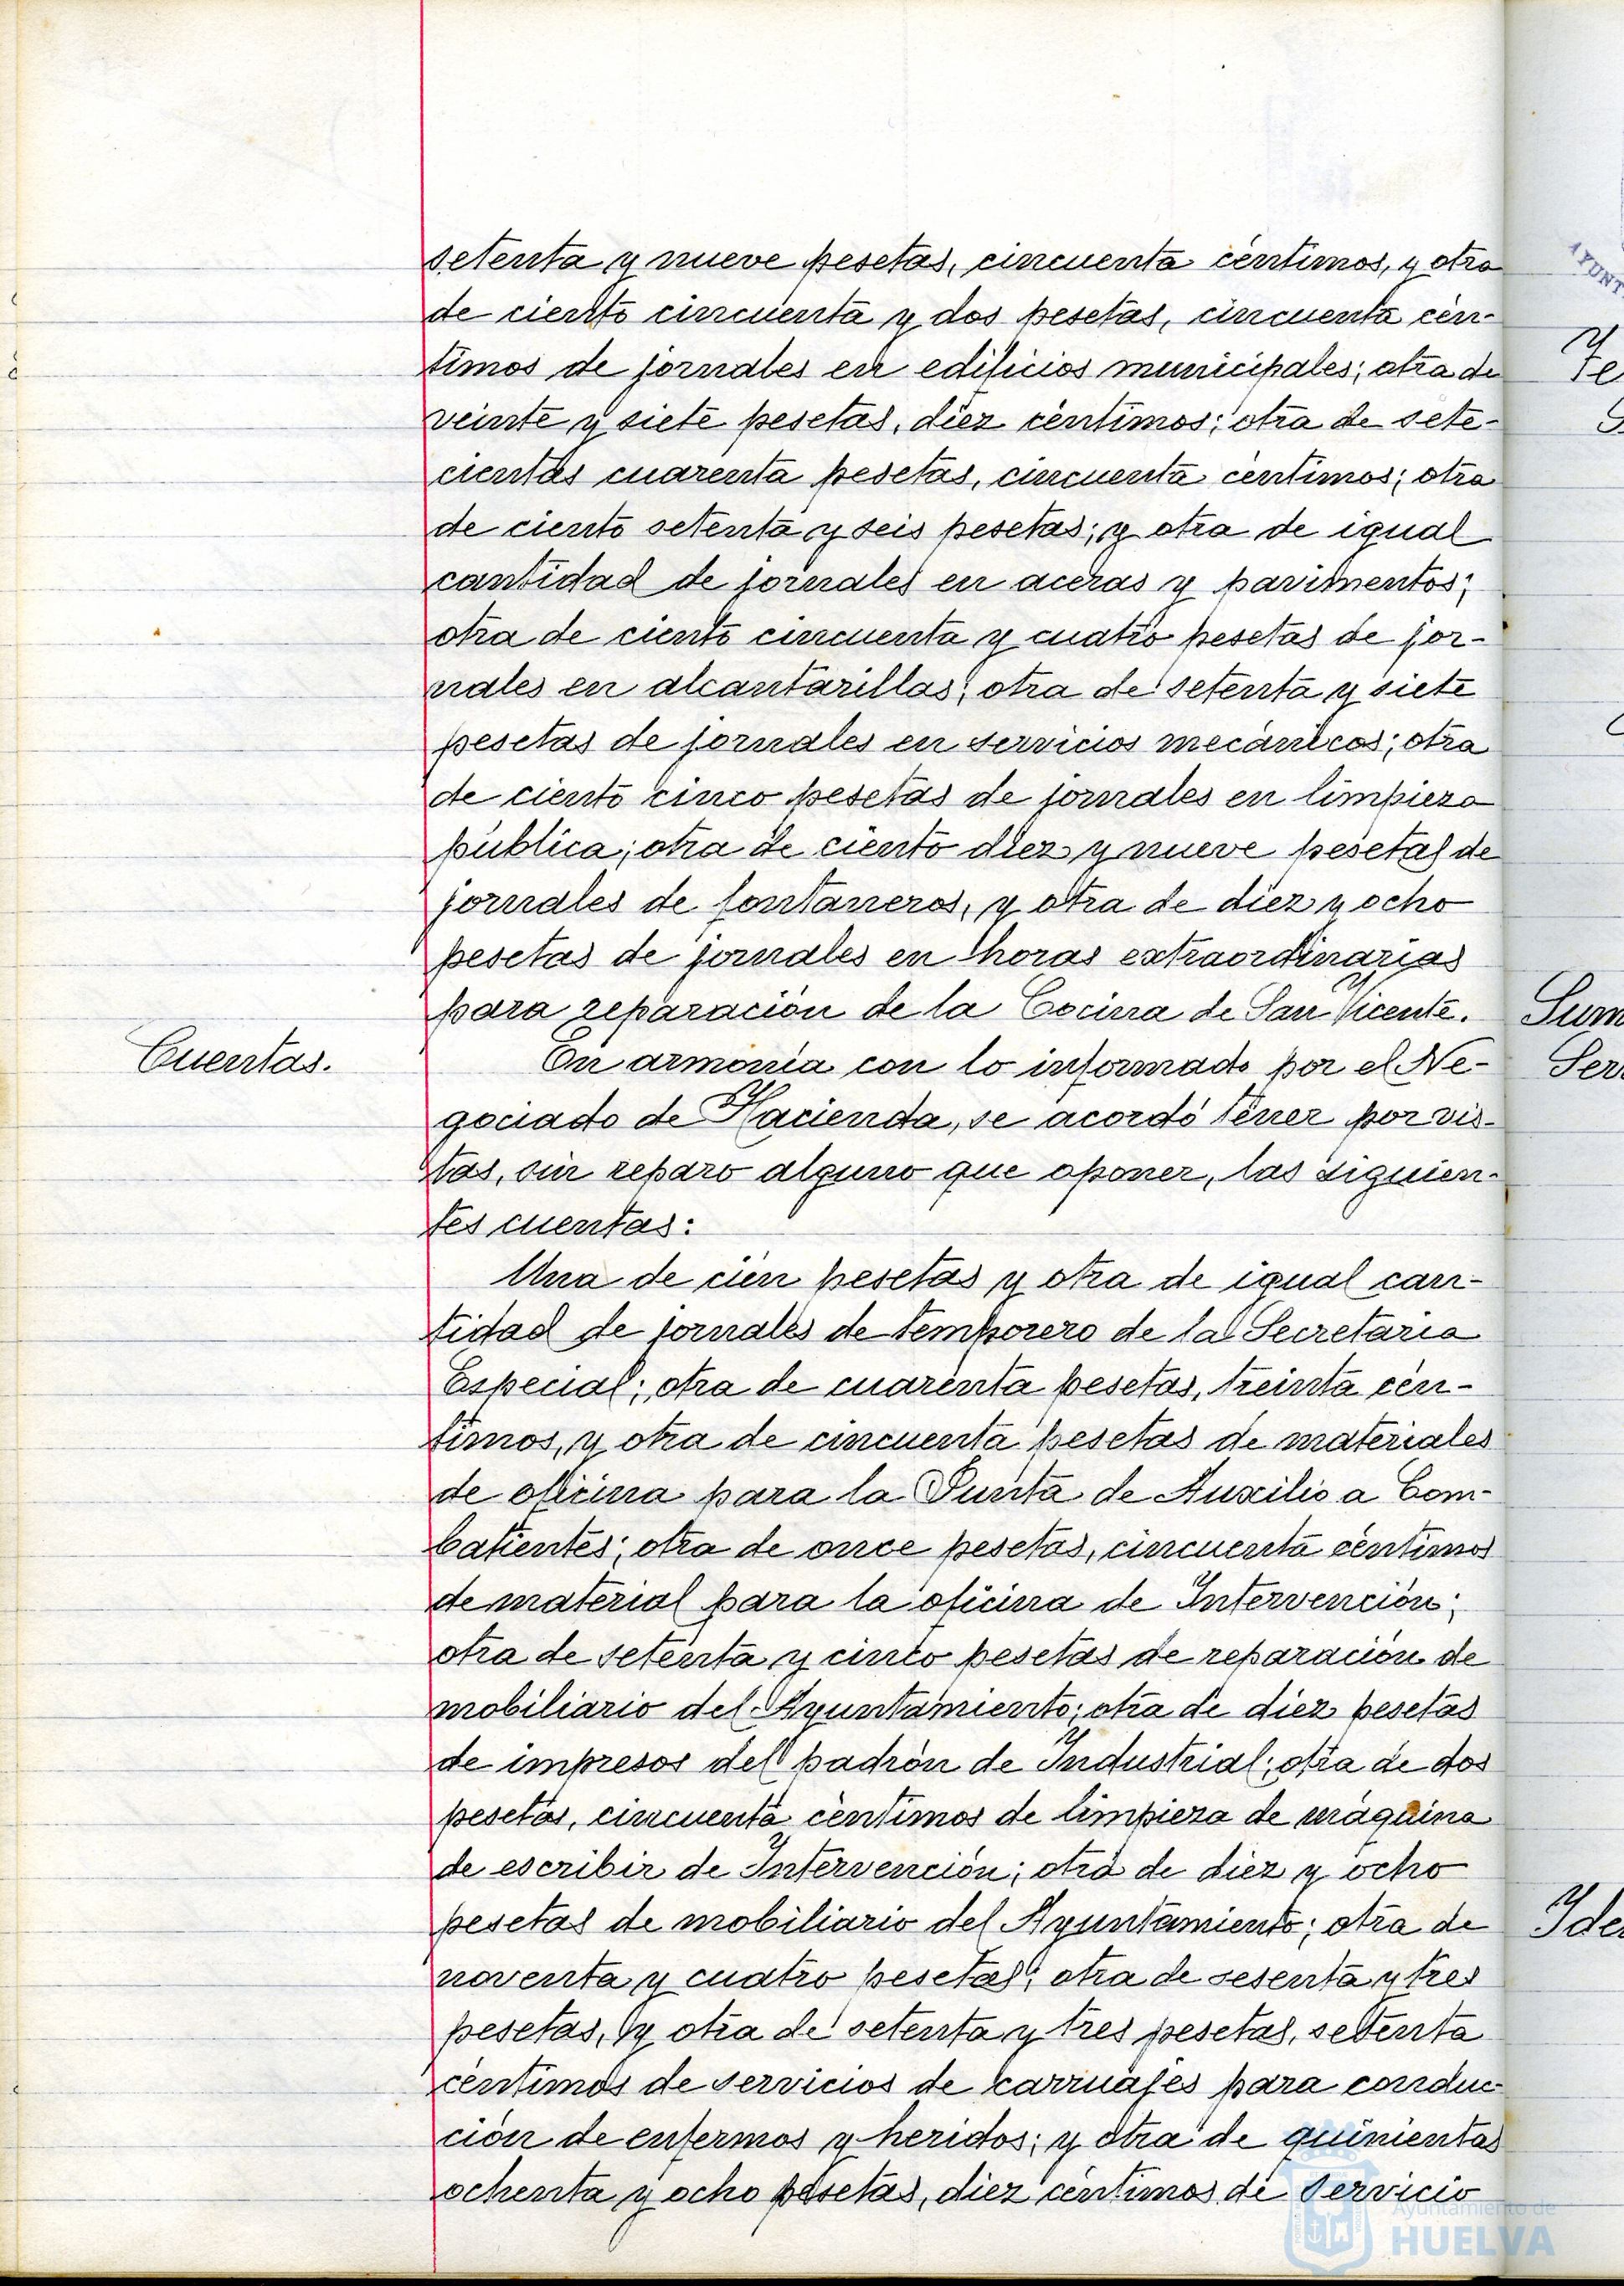 setenta y nueve pesetas, cincuenta céntimos, y otra
de ciento cincuenta y dos pesetas, cincuenta cén-
timos de jornales en edificios municipales; otra de
veinte y siete pesetas, diez céntimos; otra de sete-
cientas cuarenta pesetas, cincuenta céntimos; otra
de ciento setenta y seis pesetas; y otra de igual
cantidad de jornales en aceras y pavimentos;
otra de ciento cincuenta y cuatro pesetas de jor-
nales en alcantarillas; otra de setenta y siete
pesetas de jornales en servicios mecánicos; otra
de ciento cinco pesetas de jornales en limpieza
pública; otra de ciento diez y nueve pesetas de
jornales de fontaneros, y otra de diez y ocho
pesetas de jornales en horas extraordinarias
para reparación de la Cocina de San Vicente.
Cuentas.
En armonía con lo informado por el Ne-
gociado de Hacienda, se acordó tener por vis-
tas, sin reparo alguno que oponer, las siguien-
tes cuentas:
Una de cien pesetas y otra de igual can-
tidad de jornales de temporero de la Secretaría
Especial; otra de cuarenta pesetas, treinta cén-
timos, y otra de cincuenta pesetas de materiales
de oficina para la Junta de Auxilio a Com-
batientes; otra de once pesetas, cincuenta céntimos
de material para la oficina de Intervención;
otra de setenta y cinco pesetas de reparación de
mobiliario del Ayuntamiento; otra de diez pesetas
de impresos del padrón de Industrial; otra de dos
pesetas, cincuenta céntimos de limpieza de máquina
de escribir de Intervención; otra de diez y ocho
pesetas de mobiliario del Ayuntamiento; otra de
noventa y cuatro pesetas; otra de sesenta y tres
pesetas, y otra de setenta y tres pesetas, setenta
céntimos de servicios de carruajes para conduc-
ción de enfermos y heridos; y otra de quinientas
ochenta y ocho pesetas, diez céntimos de servicio
Ayuntamiento de
HUELVA